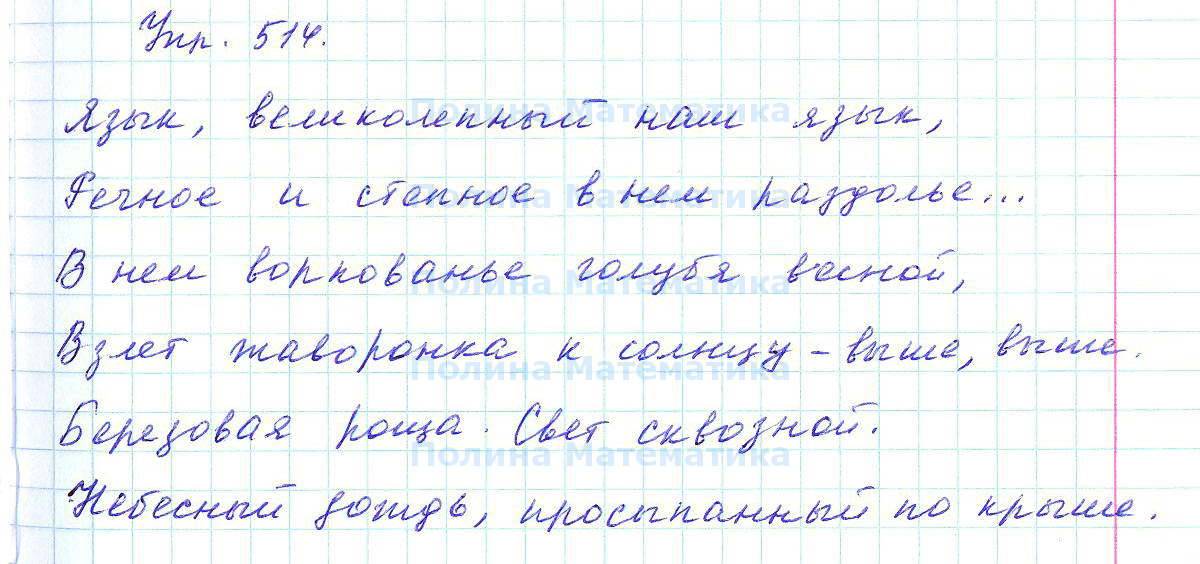 Упр. 514.
Язык, великолепный наш язык,
Полина Математика
Речное и степное в нем раздолье...
Полина Математика
В нем воркованье голубя весной,
Полина Математика
Взлет жаворонка к солнцу – выше, выше.
Полина Математика
Березовая роща. Свет сквозной.
Полина Математика
Небесный дождь, просыпанный по крыше.